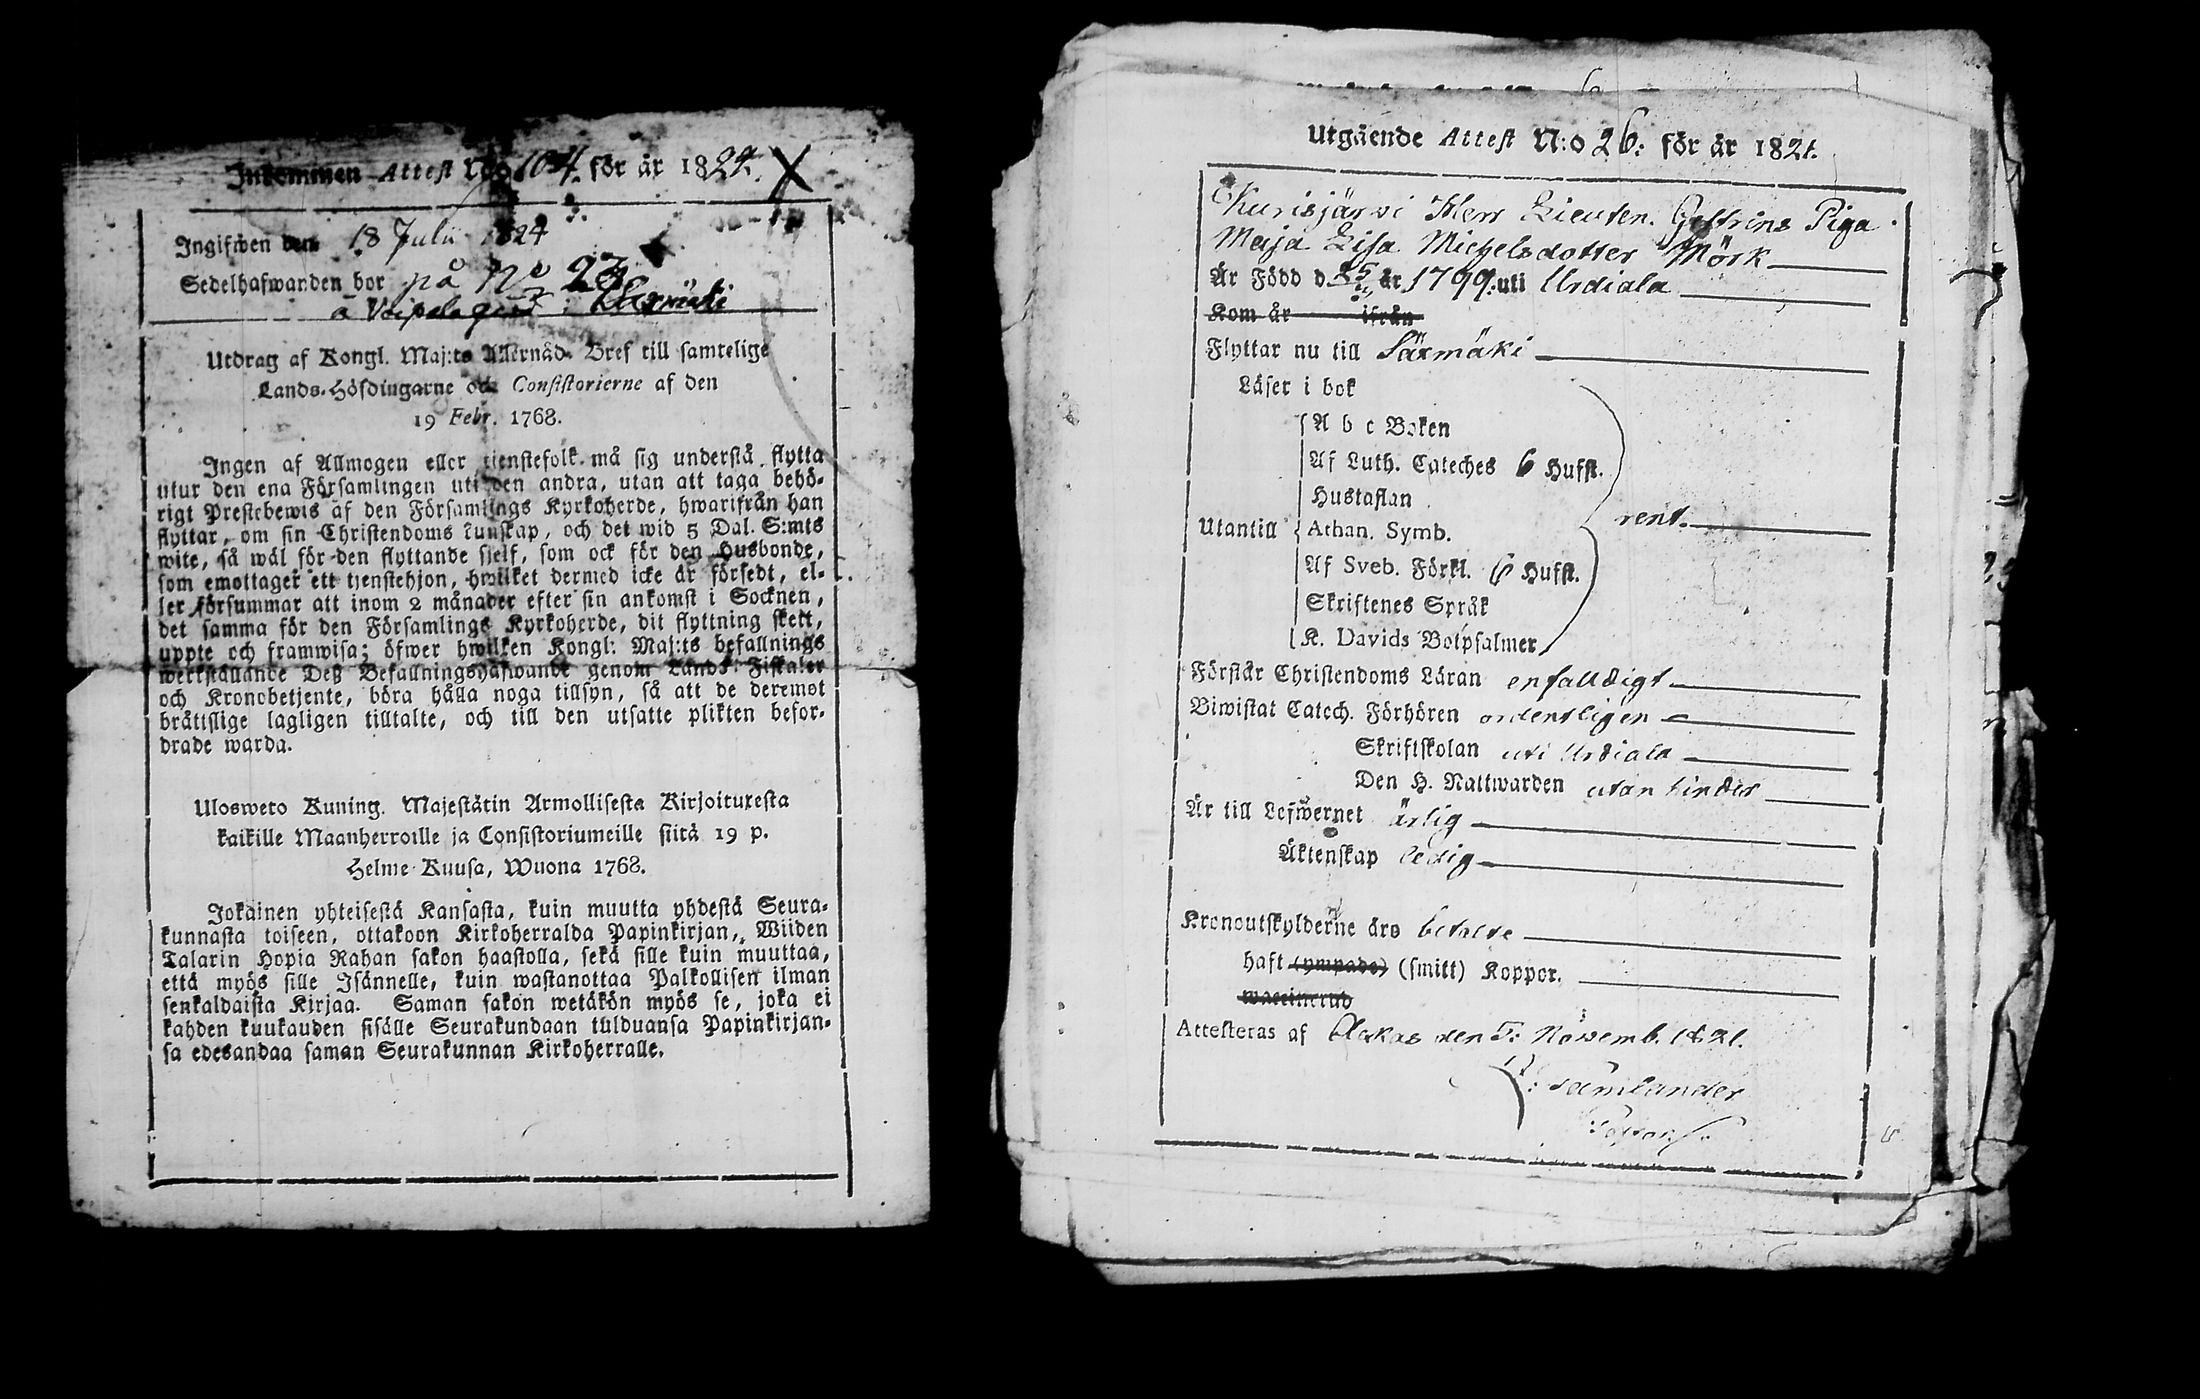 Inkommen Attest N:o 104. för år 1824. X
Ingifwen den 18 Julii 1824
Sedelhafwanden bor på No 23
å Voipala gård i Säxmäki
Utdrag af Kongl. Maj:ts Allernåd. Bref till samtelige
Lands-Höfdingarne och Consistorierne af den
19 Febr. 1768.
Ingen af Allmogen eller tjenstefolk må sig understå flytta
utur den ena Församlingen uti den andra, utan att taga behö-
rigt Prestebewis af den Församlings Kyrkoherde, hwarifrån han
flyttar, om sin Christendoms kunskap, och det wid 5 Dal. S:mts
wite, så wäl för den flyttande sjelf, som ock för den Husbonde,
som emottager ett tjenstehjon, hwilket dermed icke är försedt, el-
ler försummar att inom 2 månader efter sin ankomst i Socknen,
det samma för den Församlings Kyrkoherde, dit flyttning skett,
uppte och framwisa; öfwer hwilken Kongl: Maj:ts befallnings
werkställande Deß Befallningshafwande genom Lands-Fiskaler
och Kronobetjente, böra hålla noga tillsyn, så att de deremot
bråttslige lagligen tilltalte, och till den utsatte plikten befor-
drade warda.
Ulosweto Kuning. Majestätin Armollisesta Kirjoituxesta
kaikille Maanherroille ja Consistoriumeille siitä 19 p.
Helme-Kuusa, Wuona 1768.
Jokainen yhteisestä Kansasta, kuin muutta yhdestä Seura-
kunnasta toiseen, ottakoon Kirkoherralda Papinkirjan, Wiiden
Talarin Hopia Rahan sakon haastolla, sekä sille kuin muuttaa,
että myös sille Isännelle, kuin wastanottaa Palkollisen ilman
senkaldaista Kirjaa. Saman sakon wetäkön myös se, joka ei
kahden kuukauden sisälle Seurakundaan tulduansa Papinkirjan-
sa edesandaa saman Seurakunnan Kirkoherralle.
Utgående Attest N:o 26: för år 1821.
Kurisjärvi Herr Lieuten. Gestrins Piga
Maja Lisa Michelsdotter Mörk
Är Född d år 1799: uti Urdiala
Kom år ifrån
Flyttar nu till Säxmäki
Läser i bok
A b c Boken
Af Luth. Cateches 6 Hufst.
Hustaflan
Utantill Athan. Symb. rent.
Af Sveb. Förkl. 6 Hufst.
Skriftenes Språk
K. Davids Botpsalmer
Förstår Christendoms Läran enfalldigt
Biwistat Catech. Förhören ordentligen
Skriftskolan uti Urdiala
Den H. Nattwarden utan hinder
Är till Lefwernet ärlig
Äktenskap ledig
Kronoutskylderne äro betalte
haft (ympade) (smitt) Koppor.
waccinerad
Attesteras af Ackas den 5: Novemb. 1821.